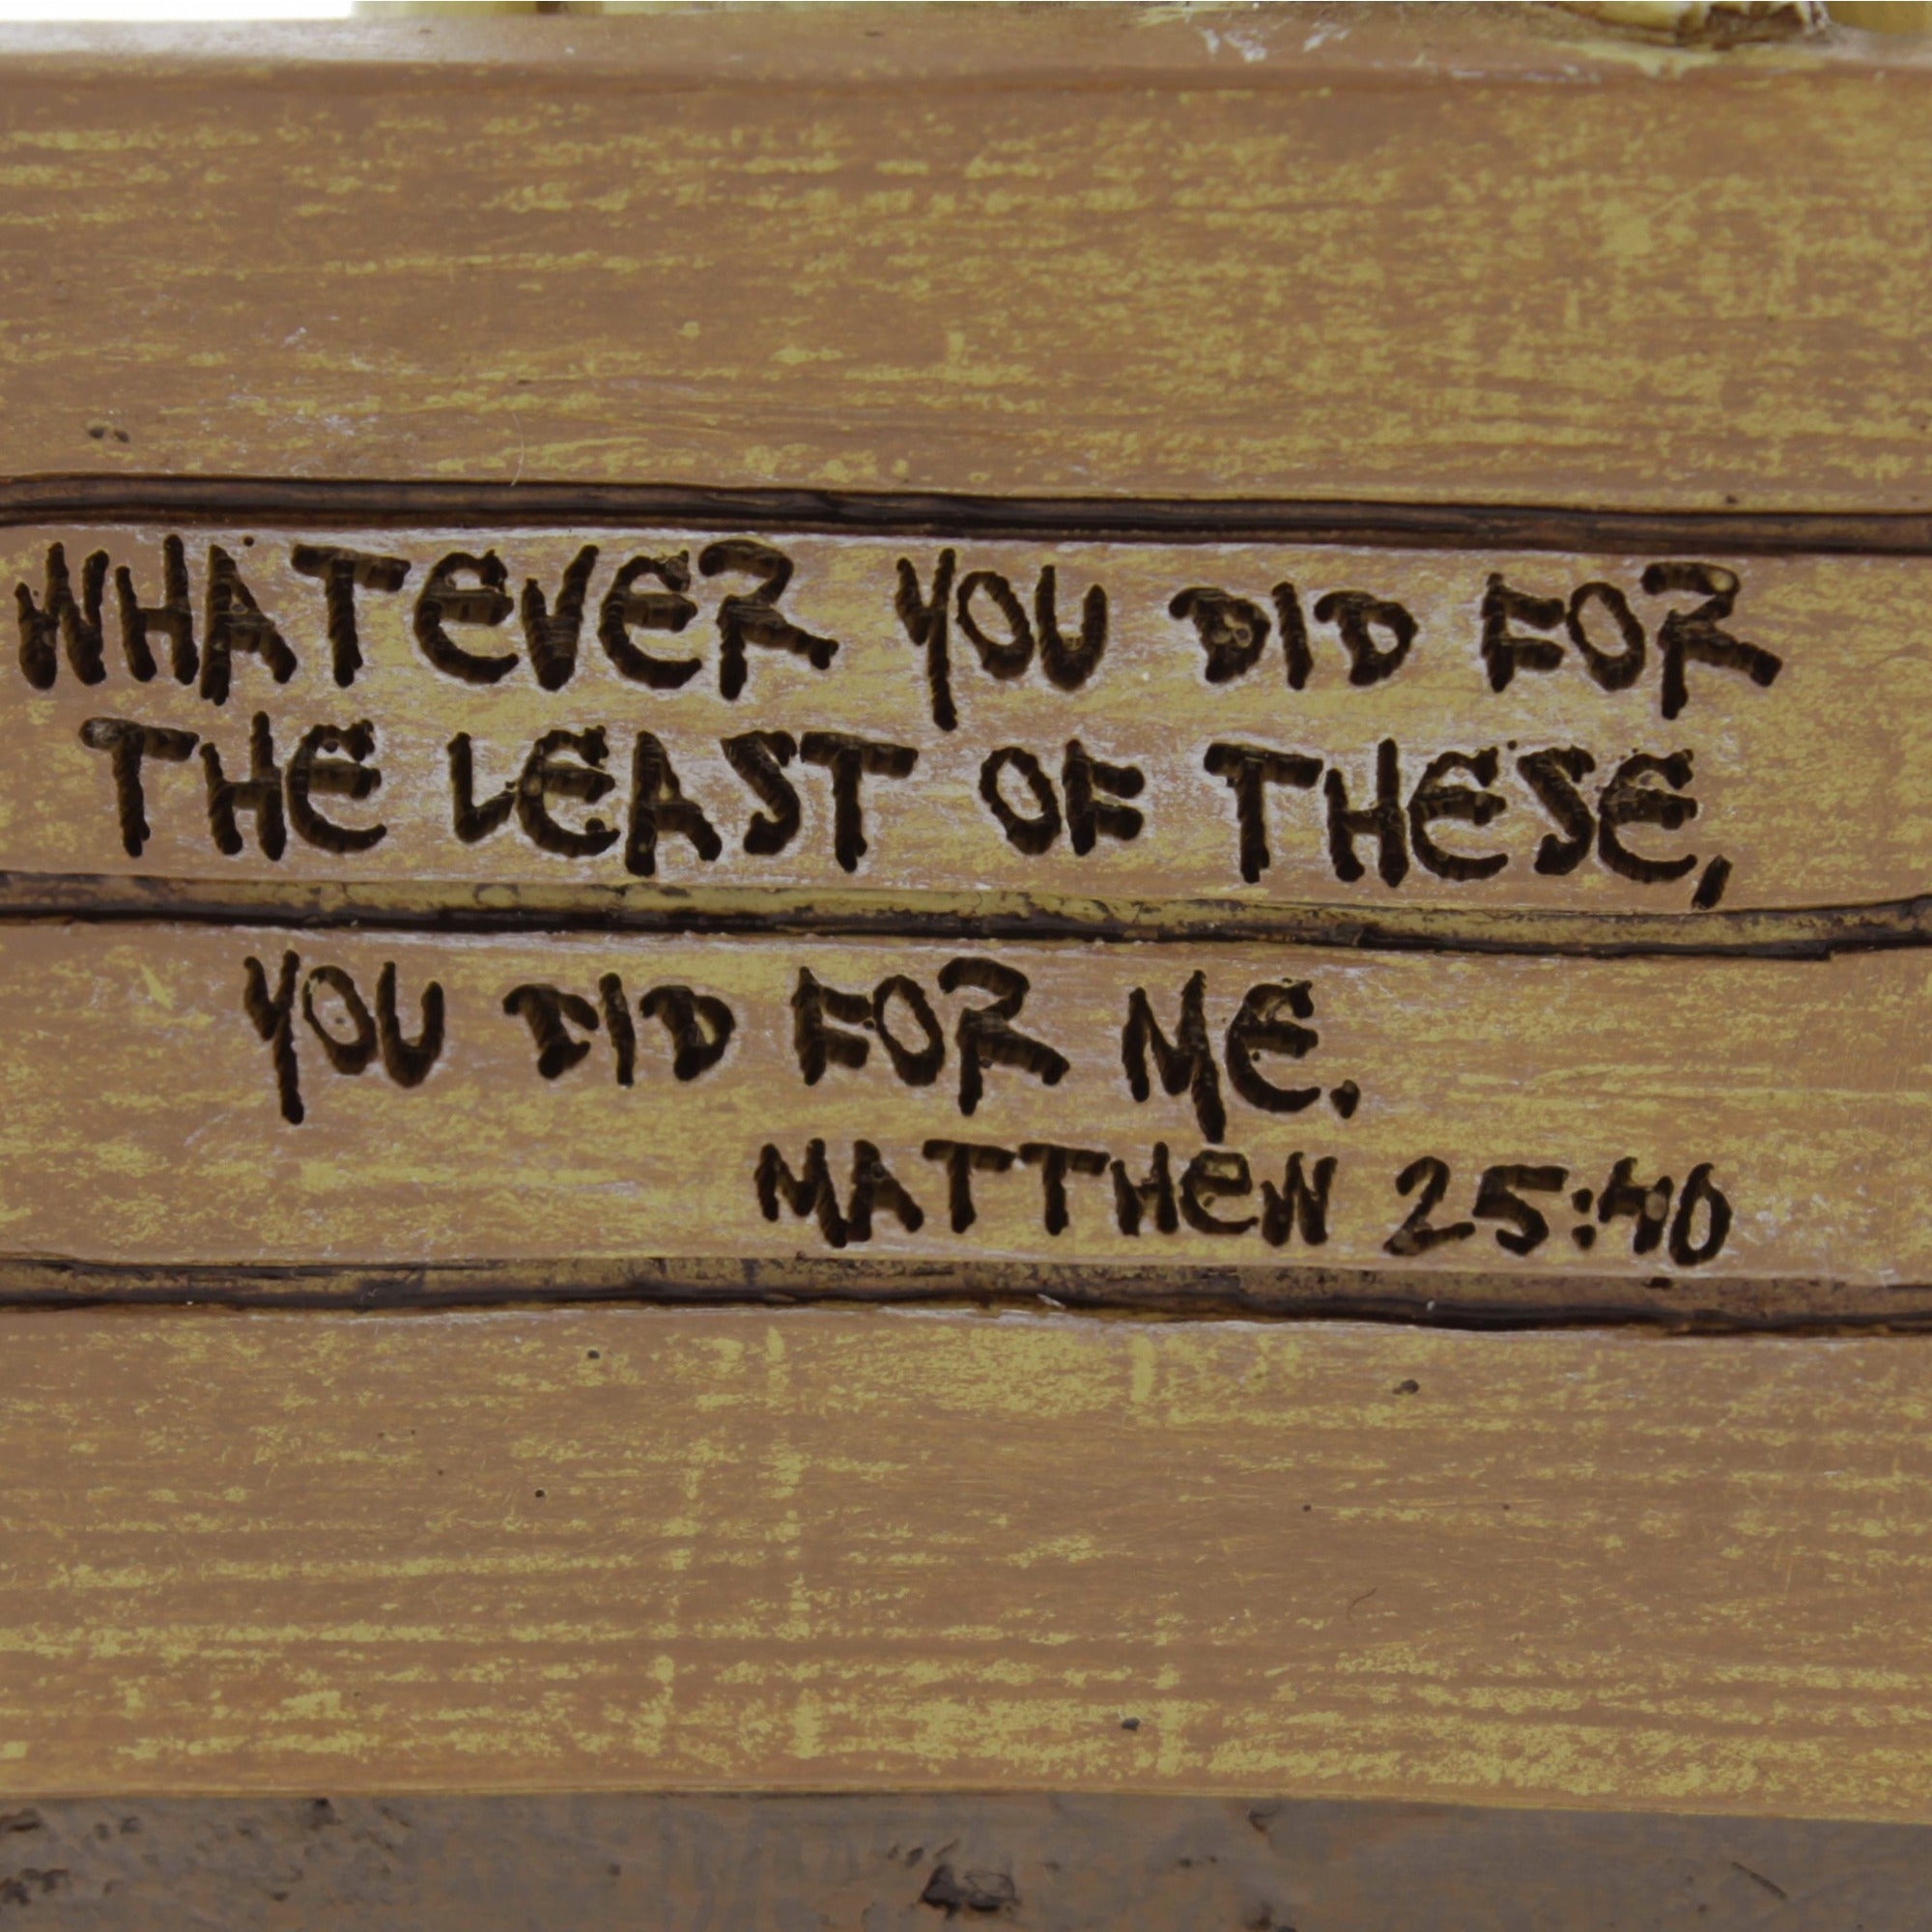 WHATEVER YOU DID FOR
THE LEAST OF THESE,
YOU DID FOR ME.
MATTHEW 25:40